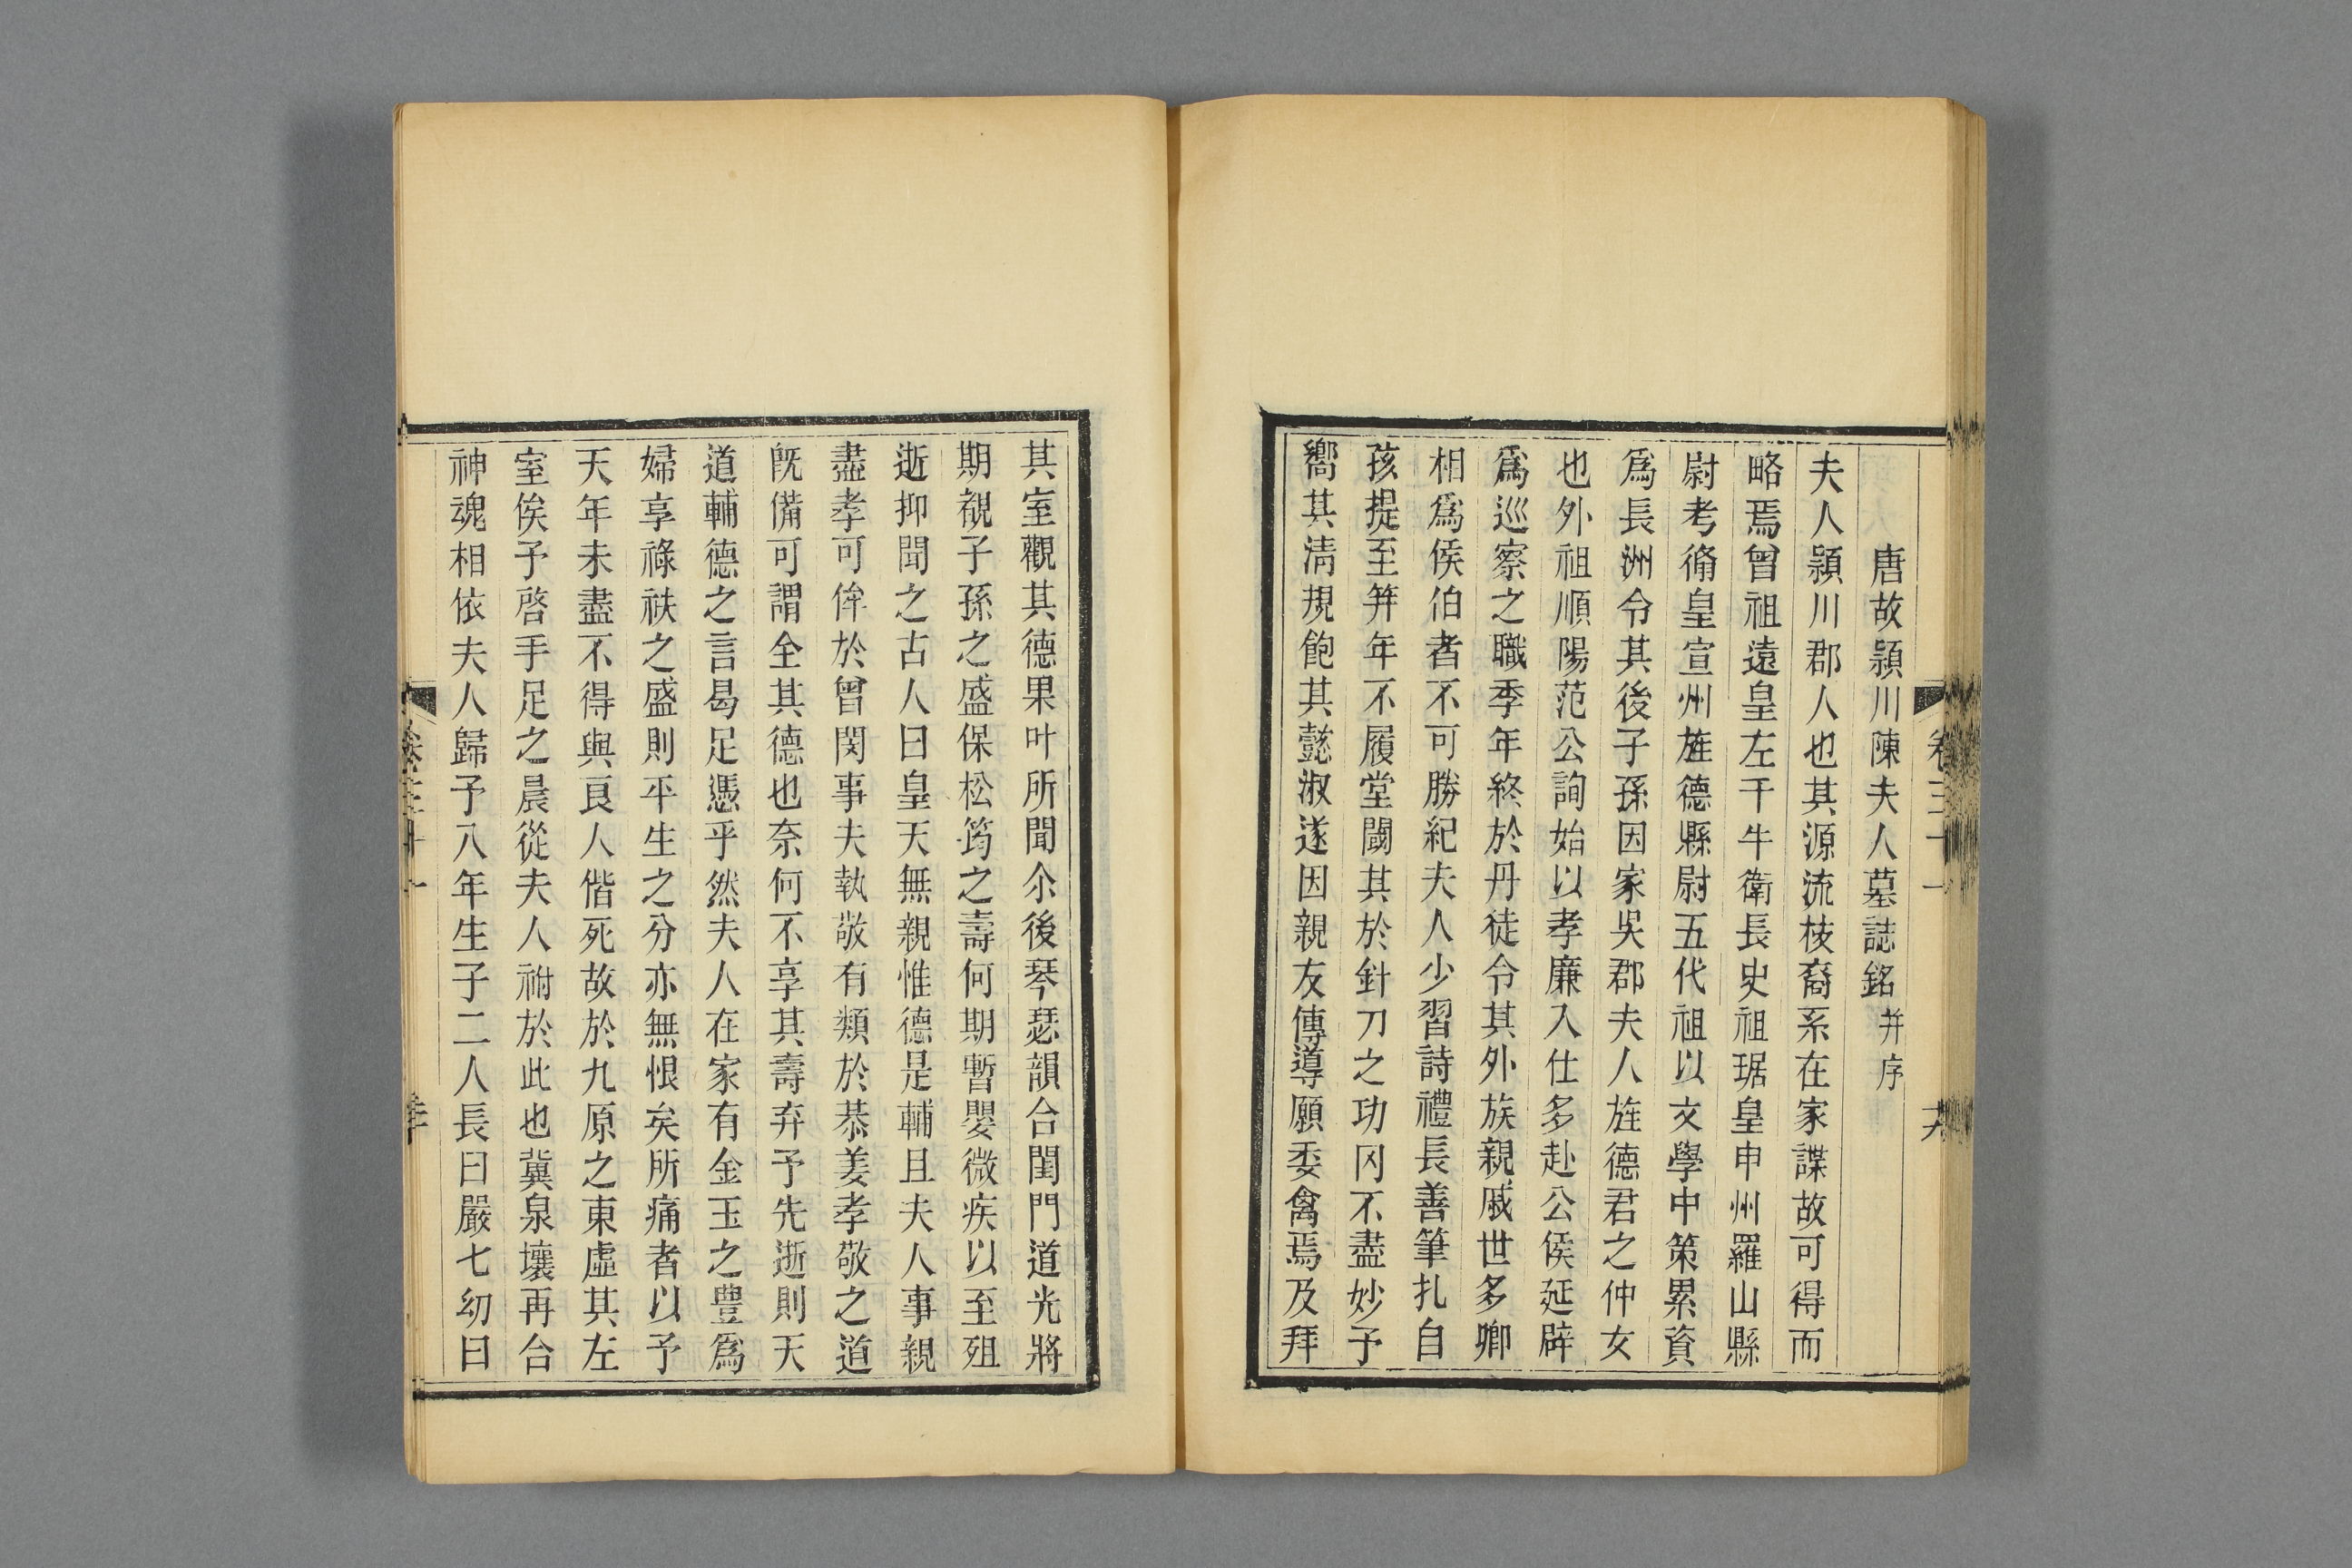 唐故潁川陳夫人墓誌銘并序
夫人潁川郡人也其源流枝裔系在家諜故可得而
略焉曾祖遠皇左千牛衛長史祖琚皇申州羅山縣
尉考脩皇宣州旌德縣尉五代祖以文學中策累資
爲長洲令其後子孫因家吳郡夫人旌德君之仲女
也外祖順陽范公詢始以孝廉入仕多赴公侯延辟
爲巡察之職季年終於丹徒令其外族親戚世多卿
相爲侯伯者不可勝紀夫人少習詩禮長善筆扎自
孩提至笄年不履堂閾其於針刀之功冈不盡妙予
嚮其淸規飽其懿淑遂因親友傳導願委禽焉及拜
其室觀其德果叶所聞尒後琴瑟韻合閨門道光將
期覩子孫之盛保松筠之壽何期暫嬰微疾以至殂
逝抑聞之古人曰皇天無親惟德是輔且夫人事親
盡孝可侔於曾閔事夫執敬有類於恭姜孝敬之道
旣備可謂全其德也奈何不享其壽弃予先逝則天
道輔德之言曷足憑乎然夫人在家有金玉之豊爲
婦享祿袟之盛則平生之分亦無恨矣所痛者以予
天年未盡不得與良人偕死故於九原之東虛其左
室俟予啓手足之晨從夫人祔於此也冀泉壤再合
神魂相依夫人歸予八年生子二人長曰嚴七幼曰